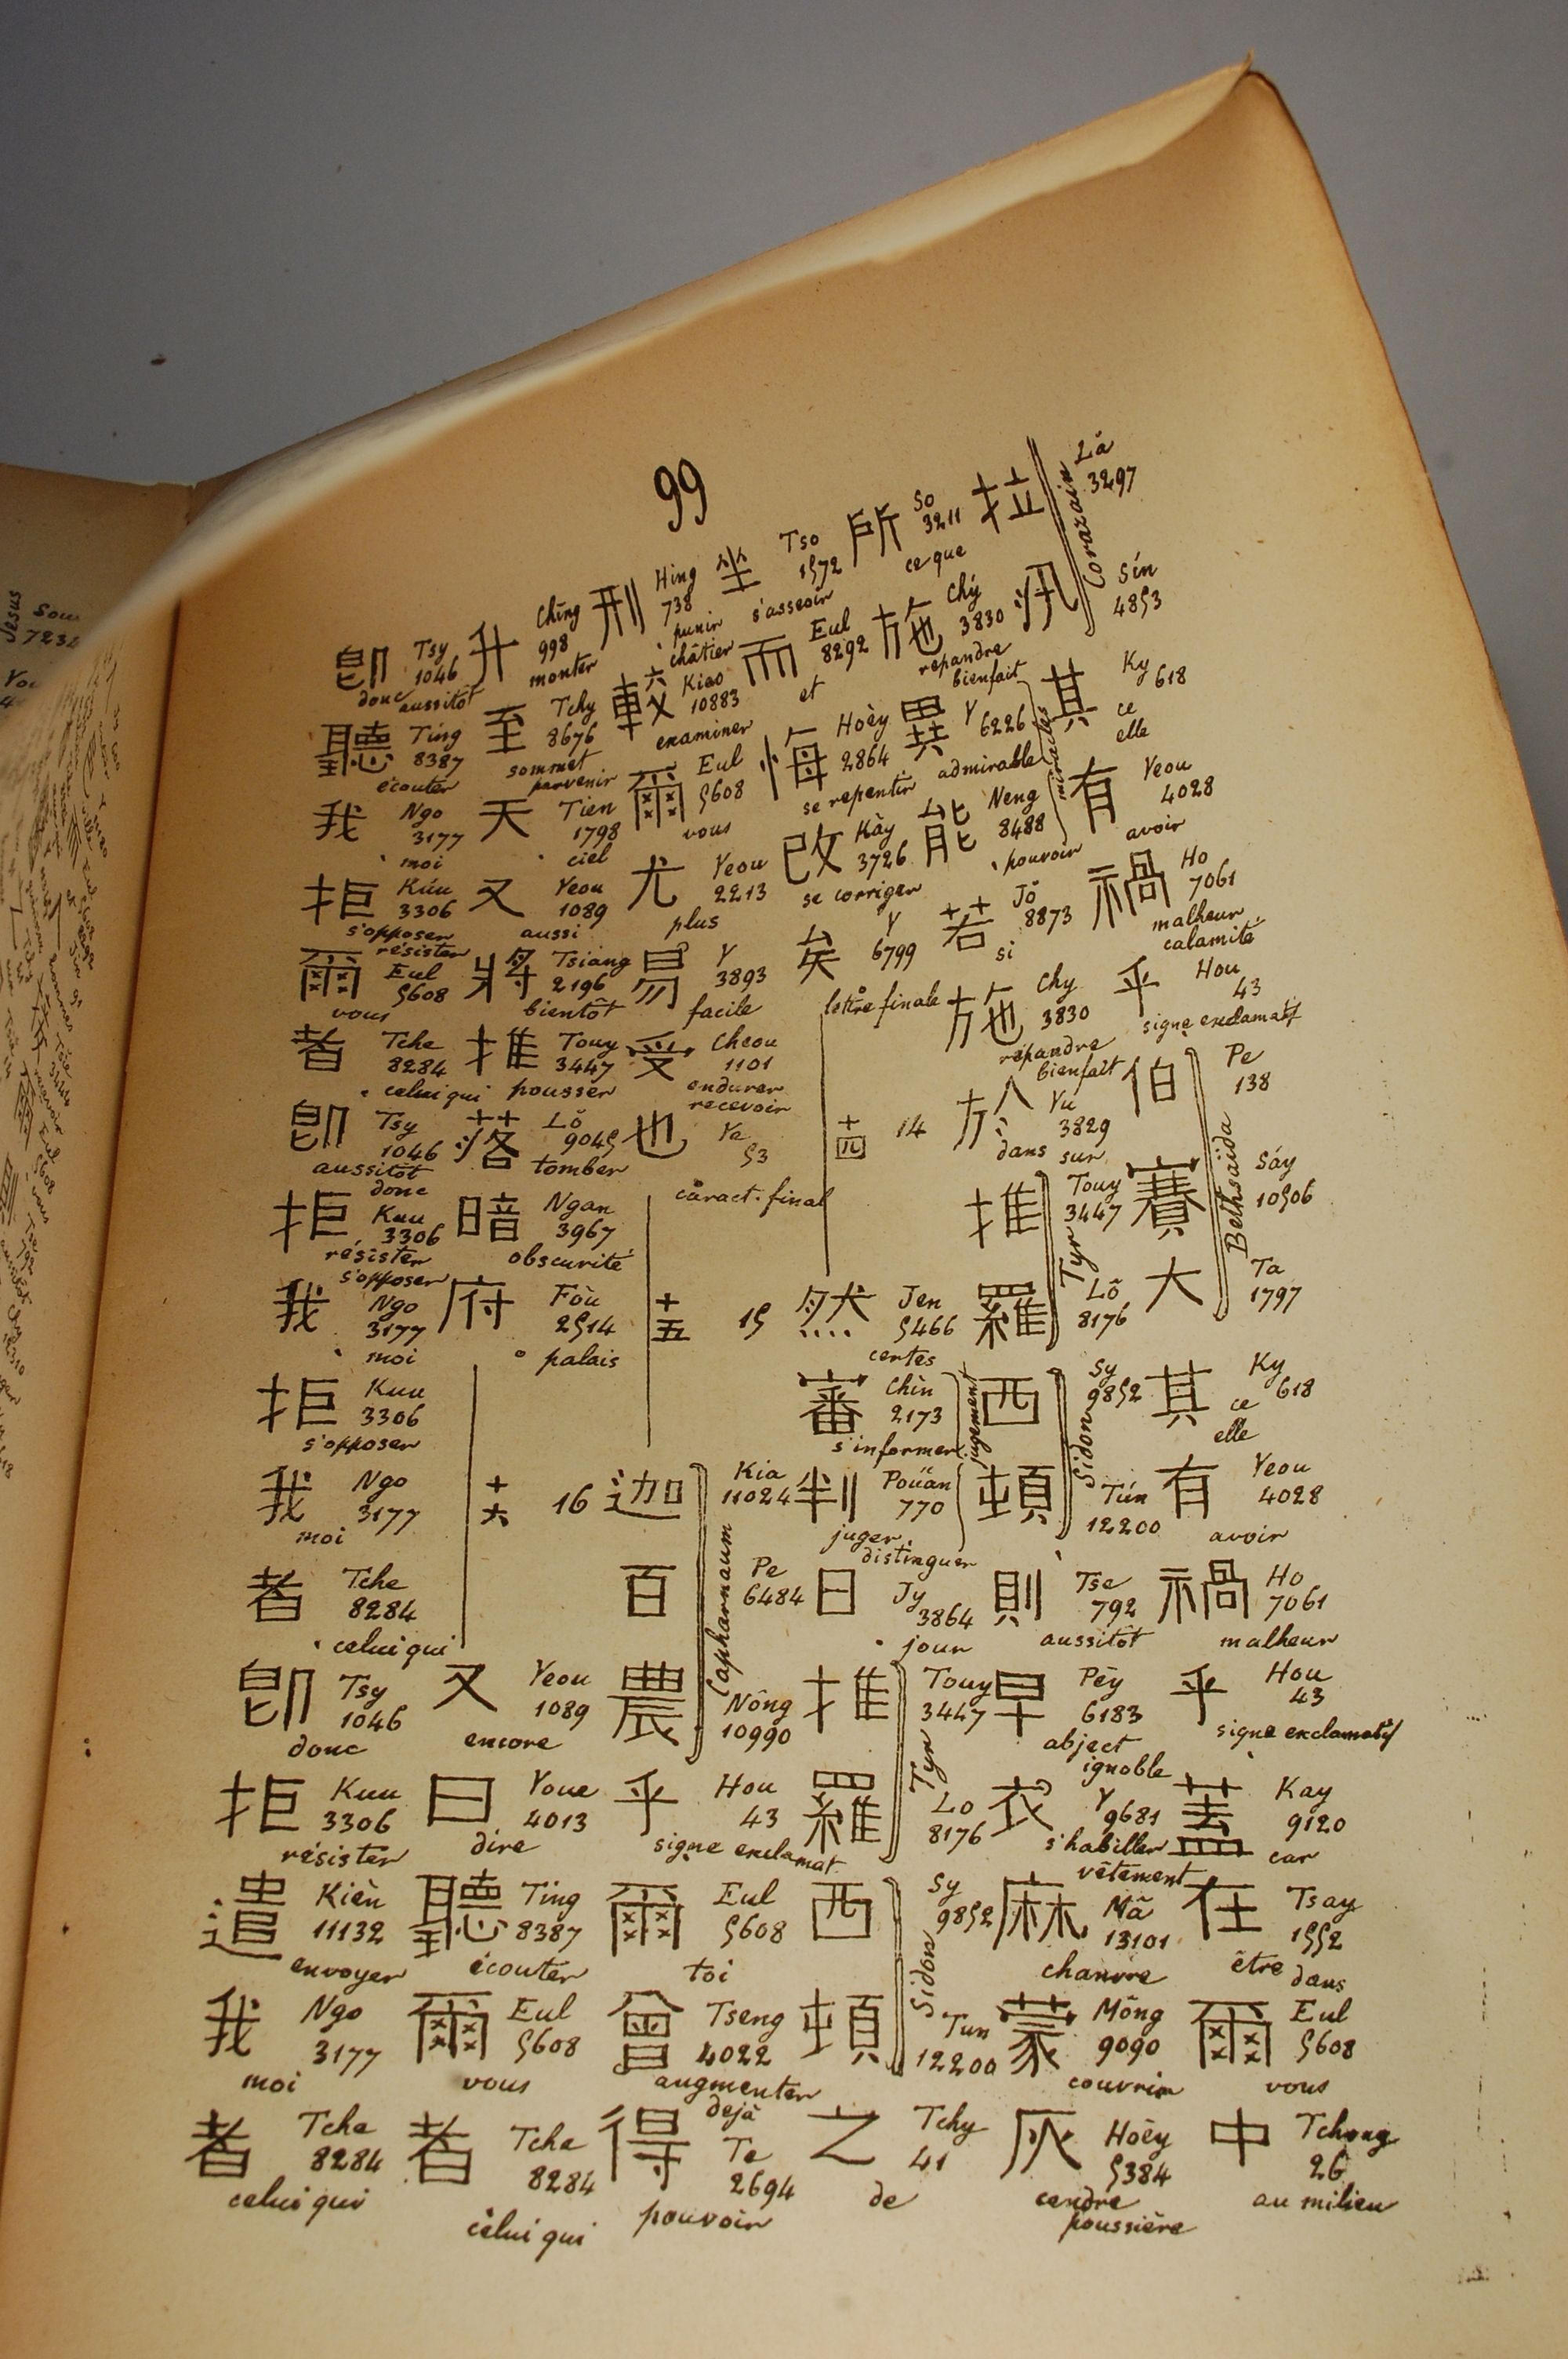 99
拉 Lǎ 3297
汛 Sín 4853
Corazain
其 Ky 618 ce elle
有 Yeou 4028 avoir
禍 Ho 7061 malheur calamité
乎 Hou 43 signe exclamatif
伯 Pe 138
賽 Sáy 10506
大 Ta 1797
Bethsaïda
其 Ky 618 ce elle
有 Yeou 4028 avoir
禍 Ho 7061 malheur
乎 Hou 43 signe exclamatif
蓋 Kay 9120 car
在 Tsay 1552 être dans
爾 Eul 5608 vous
中 Tchong 26 au milieu
所 So 3211 ce que
施 Chý 3830 répandre bienfait
異 Y 6226 admirable
能 Neng 8488 pouvoir
miracles
若 Jǒ 8873 si
施 Chy 3830 répandre bienfait
於 Yu 3829 dans sur
推 Touy 3447
羅 Lô 8176
Tyr
西 Sy 9852
頓 Tún 12200
Sidon
則 Tse 792 aussitôt
卑 Pēy 6183 abject ignoble
衣 Y 9681 s'habiller vêtement
麻 Mâ 13101 chanvre
蒙 Mông 9090 couvrir
灰 Hoēy 5384 cendre poussière
坐 Tso 1572 s'asseoir
而 Eul 8292 et
悔 Hoèy 2864 se repentir
改 Kày 3726 se corriger
矣 Y 6799 lettre finale
十四 14
然 Jen 5466 certes
審 Chìn 2173 s'informer
判 Pouan 770 juger distinguer
jugement
日 Jy 3864 jour
推 Touy 3447
羅 Lo 8176
Tyr
西 Sy 9852
頓 Tun 12200
Sidon
之 Tchy 41 de
刑 Hing 738 punir châtier
較 Kiao 10883 examiner
爾 Eul 5608 vous
尤 Yeou 2213 plus
易 Y 3893 facile
受 Cheou 1101 endurer recevoir
也 Ye 53 caract. final
十五 15
迦 Kia 11024
百 Pe 6484
農 Nông 10990
Capharnaum
乎 Hou 43 signe exclamat.
爾 Eul 5608 toi
曾 Tseng 4022 augmenter dejà
得 Te 2694 pouvoir
升 Chīng 998 monter
至 Tchy 8676 sommet parvenir
天 Tien 1798 ciel
又 Yeou 1089 aussi
將 Tsiang 2196 bientôt
推 Touy 3447 pousser
落 Lǒ 9045 tomber
暗 Ngan 3967 obscurité
府 Fòu 2514 palais
十六 16
又 Yeou 1089 encore
曰 Youe 4013 dire
聽 Ting 8387 écouter
爾 Eul 5608 vous
者 Tche 8284 celui qui
卽 Tsy 1046 donc aussitôt
聽 Ting 8387 écouter
我 Ngo 3177 moi
拒 Kúu 3306 s'opposer résister
爾 Eul 5608 vous
者 Tche 8284 celui qui
卽 Tsy 1046 aussitôt donc
拒 Kuu 3306 résister s'opposer
我 Ngo 3177 moi
拒 Kuu 3306 s'opposer
我 Ngo 3177 moi
者 Tche 8284 celui qui
卽 Tsy 1046 donc
拒 Kuu 3306 résister
遣 Kièn 11132 envoyer
我 Ngo 3177 moi
者 Tche 8284 celui qui